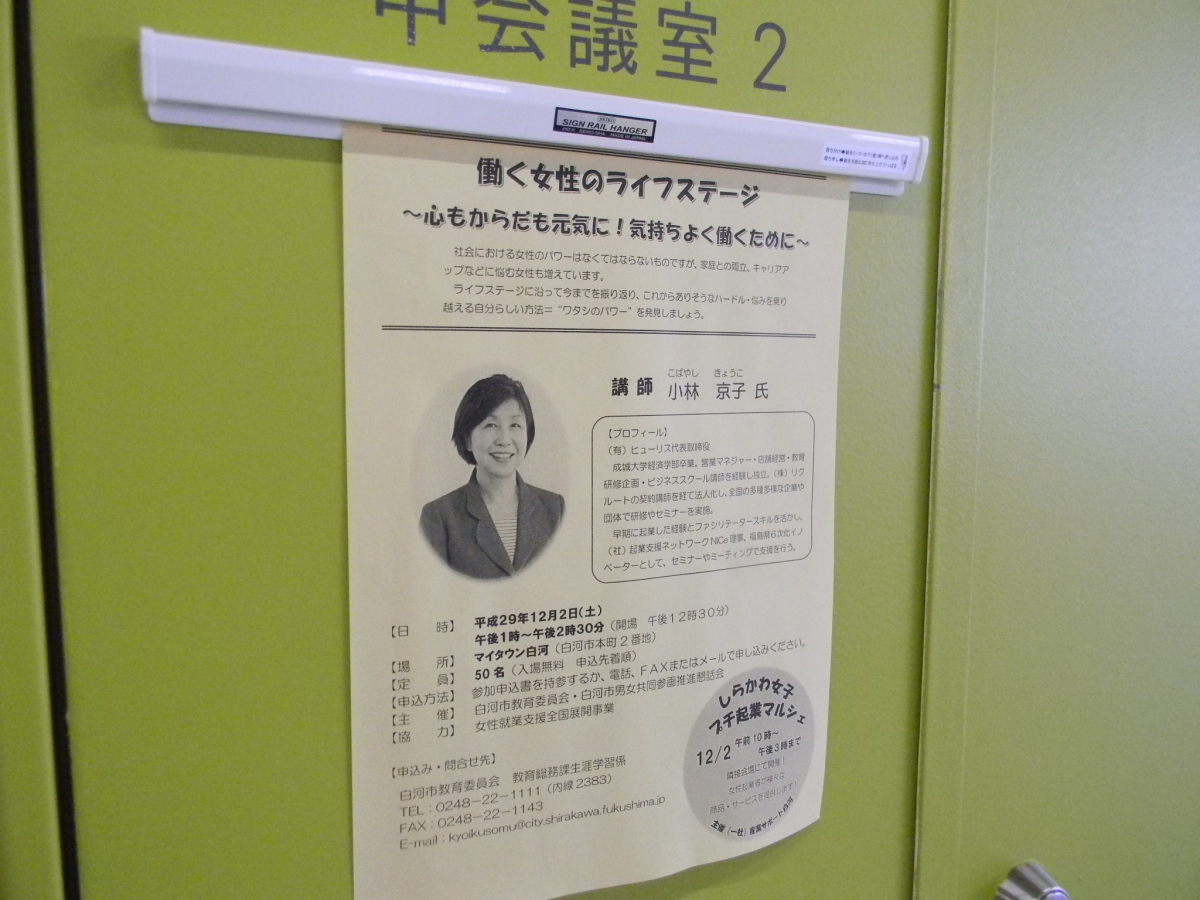 中会議室 2
SIGN RAIL HANGER
MADE IN JAPAN
働く女性のライフステージ
～心もからだも元気に！気持ちよく働くために～
社会における女性のパワーはなくてはならないものですが、家庭との両立、キャリアア
ップなどに悩む女性も増えています。
ライフステージに沿って今までを振り返り、これからありそうなハードル・悩みを乗り
越える自分らしい方法＝“ワタシのパワー”を発見しましょう。
こばやし きょうこ
講師 小林 京子 氏
【プロフィール】
（有）ヒューリス代表取締役
成城大学経済学部卒業。営業マネジャー・店舗経営・教育
研修企画・ビジネススクール講師を経験し独立。（株）リク
ルートの契約講師を経て法人化し、全国の多種多様な企業や
団体で研修やセミナーを実施。
早期に起業した経験とファシリテータースキルを活かし、
（社）起業支援ネットワークNICe理事、福島県6次化イノ
ベーターとして、セミナーやミーティングで支援を行う。
【日 時】 平成29年12月2日(土)
午後1時～午後2時30分（開場 午後12時30分）
【場 所】 マイタウン白河（白河市本町2番地）
【定 員】 50名（入場無料 申込先着順）
【申込方法】 参加申込書を持参するか、電話、FAXまたはメールで申し込みください。
【主 催】 白河市教育委員会・白河市男女共同参画推進懇話会
【協 力】 女性就業支援全国展開事業
【申込み・問合せ先】
白河市教育委員会 教育総務課生涯学習係
TEL：0248－22－1111（内線2383）
FAX：0248－22－1143
E-mail：kyoikusomu@city.shirakawa.fukushima.jp
しらかわ女子
プチ起業マルシェ
12/2 午前10時～
午後3時まで
隣接会場にて開催！
女性起業者が様々な
商品・サービスを提供します！
主催（一社）産業サポート白河